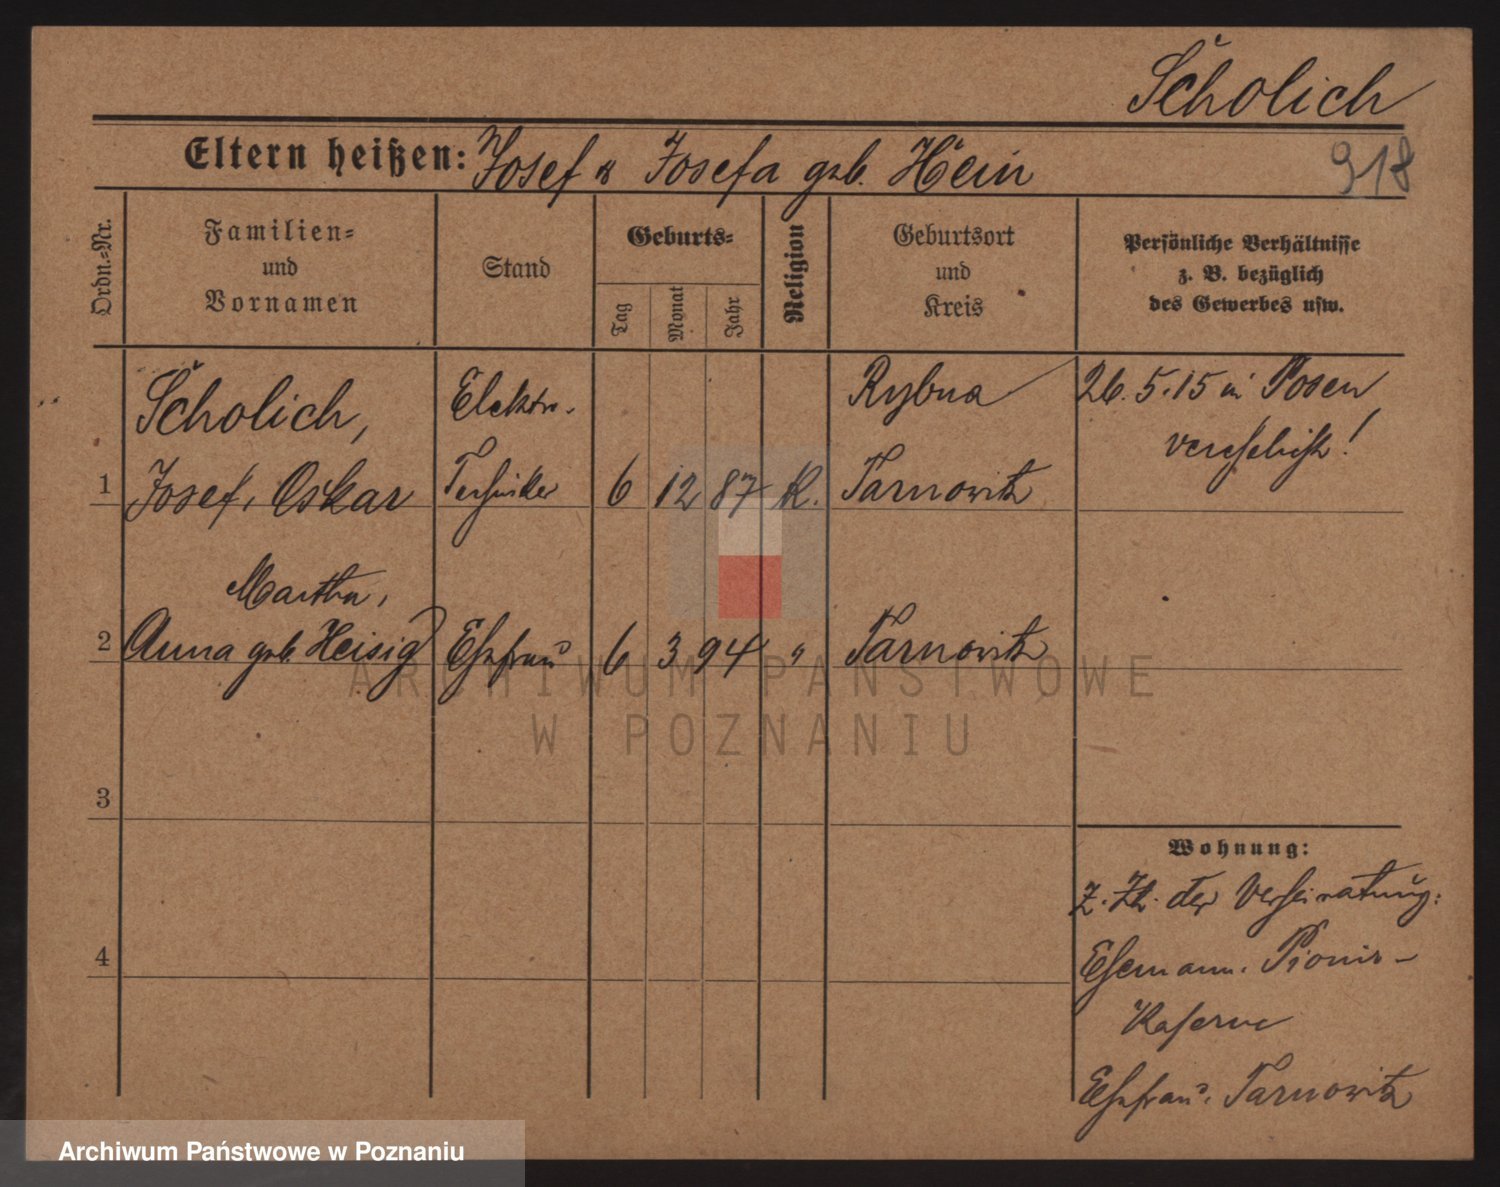 Scholich
Eltern heißen: Josef & Josefa geb. Hein
918
Ordn.-Nr.
Familien-
und
Vornamen
Stand
Geburts-
Tag
Monat
Jahr
Religion
Geburtsort
und
Kreis
Persönliche Verhältnisse
z. B. bezüglich
des Gewerbes usw.
Scholich, Elektro- Rybna 26. 5. 15 in Posen
verehelicht!
1 Josef, Oskar Techniker 6 12 87 K. Tarnowitz
Martha,
2 Anna geb. Heisig Ehefrau 6 3 94 " Tarnowitz
3
4
Wohnung:
z. Zt. der Verheiratung:
Ehemann. Pionir-
Kaserne
Ehefrau. Tarnowitz
ARCHIWUM PAŃSTWOWE
W POZNANIU
Archiwum Państwowe w Poznaniu